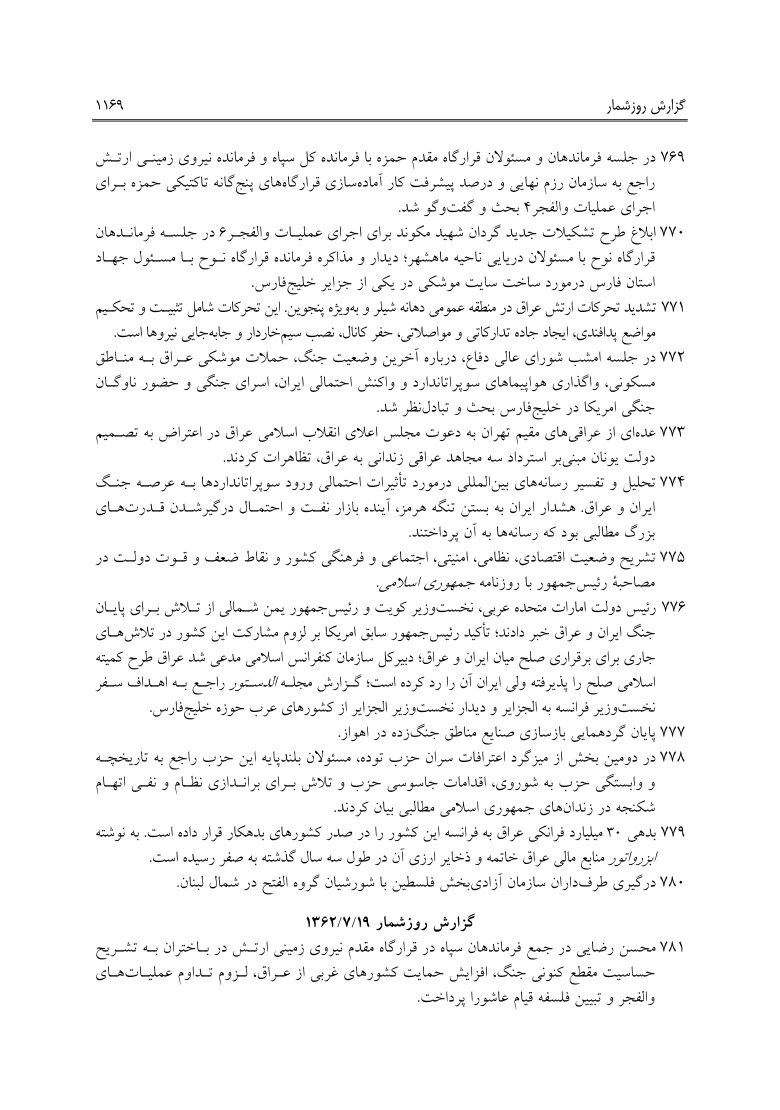 گزارش روزشمار ۱۱۶۹
۷۶۹ در جلسه فرماندهان و مسئولان قرارگاه مقدم حمزه با فرمانده کل سپاه و فرمانده نیروی زمینی ارتش
راجع به سازمان رزم نهایی و درصد پیشرفت کار آماده‌سازی قرارگاه‌های پنج‌گانه تاکتیکی حمزه برای
اجرای عملیات والفجر۴ بحث و گفت‌وگو شد.
۷۷۰ ابلاغ طرح تشکیلات جدید گردان شهید مکوند برای اجرای عملیات والفجر۶ در جلسه فرماندهان
قرارگاه نوح با مسئولان دریایی ناحیه ماهشهر؛ دیدار و مذاکره فرمانده قرارگاه نوح با مسئول جهاد
استان فارس درمورد ساخت سایت موشکی در یکی از جزایر خلیج‌فارس.
۷۷۱ تشدید تحرکات ارتش عراق در منطقه عمومی دهانه شیلر و به‌ویژه پنجوین. این تحرکات شامل تثبیت و تحکیم
مواضع پدافندی، ایجاد جاده تدارکاتی و مواصلاتی، حفر کانال، نصب سیم‌خاردار و جابه‌جایی نیروها است.
۷۷۲ در جلسه امشب شورای عالی دفاع، درباره آخرین وضعیت جنگ، حملات موشکی عراق به مناطق
مسکونی، واگذاری هواپیماهای سوپراتاندارد و واکنش احتمالی ایران، اسرای جنگی و حضور ناوگان
جنگی امریکا در خلیج‌فارس بحث و تبادل‌نظر شد.
۷۷۳ عده‌ای از عراقی‌های مقیم تهران به دعوت مجلس اعلای انقلاب اسلامی عراق در اعتراض به تصمیم
دولت یونان مبنی‌بر استرداد سه مجاهد عراقی زندانی به عراق، تظاهرات کردند.
۷۷۴ تحلیل و تفسیر رسانه‌های بین‌المللی درمورد تأثیرات احتمالی ورود سوپراتانداردها به عرصه جنگ
ایران و عراق. هشدار ایران به بستن تنگه هرمز، آینده بازار نفت و احتمال درگیرشدن قدرت‌های
بزرگ مطالبی بود که رسانه‌ها به آن پرداختند.
۷۷۵ تشریح وضعیت اقتصادی، نظامی، امنیتی، اجتماعی و فرهنگی کشور و نقاط ضعف و قوت دولت در
مصاحبهٔ رئیس‌جمهور با روزنامه جمهوری اسلامی.
۷۷۶ رئیس دولت امارات متحده عربی، نخست‌وزیر کویت و رئیس‌جمهور یمن شمالی از تلاش برای پایان
جنگ ایران و عراق خبر دادند؛ تأکید رئیس‌جمهور سابق امریکا بر لزوم مشارکت این کشور در تلاش‌های
جاری برای برقراری صلح میان ایران و عراق؛ دبیرکل سازمان کنفرانس اسلامی مدعی شد عراق طرح کمیته
اسلامی صلح را پذیرفته ولی ایران آن را رد کرده است؛ گزارش مجله الدستور راجع به اهداف سفر
نخست‌وزیر فرانسه به الجزایر و دیدار نخست‌وزیر الجزایر از کشورهای عرب حوزه خلیج‌فارس.
۷۷۷ پایان گردهمایی بازسازی صنایع مناطق جنگ‌زده در اهواز.
۷۷۸ در دومین بخش از میزگرد اعترافات سران حزب توده، مسئولان بلندپایه این حزب راجع به تاریخچه
و وابستگی حزب به شوروی، اقدامات جاسوسی حزب و تلاش برای براندازی نظام و نفی اتهام
شکنجه در زندان‌های جمهوری اسلامی مطالبی بیان کردند.
۷۷۹ بدهی ۳۰ میلیارد فرانکی عراق به فرانسه این کشور را در صدر کشورهای بدهکار قرار داده است. به نوشته
ابزرواتور منابع مالی عراق خاتمه و ذخایر ارزی آن در طول سه سال گذشته به صفر رسیده است.
۷۸۰ درگیری طرف‌داران سازمان آزادی‌بخش فلسطین با شورشیان گروه الفتح در شمال لبنان.
گزارش روزشمار ۱۳۶۲/۷/۱۹
۷۸۱ محسن رضایی در جمع فرماندهان سپاه در قرارگاه مقدم نیروی زمینی ارتش در باختران به تشریح
حساسیت مقطع کنونی جنگ، افزایش حمایت کشورهای غربی از عراق، لزوم تداوم عملیات‌های
والفجر و تبیین فلسفه قیام عاشورا پرداخت.